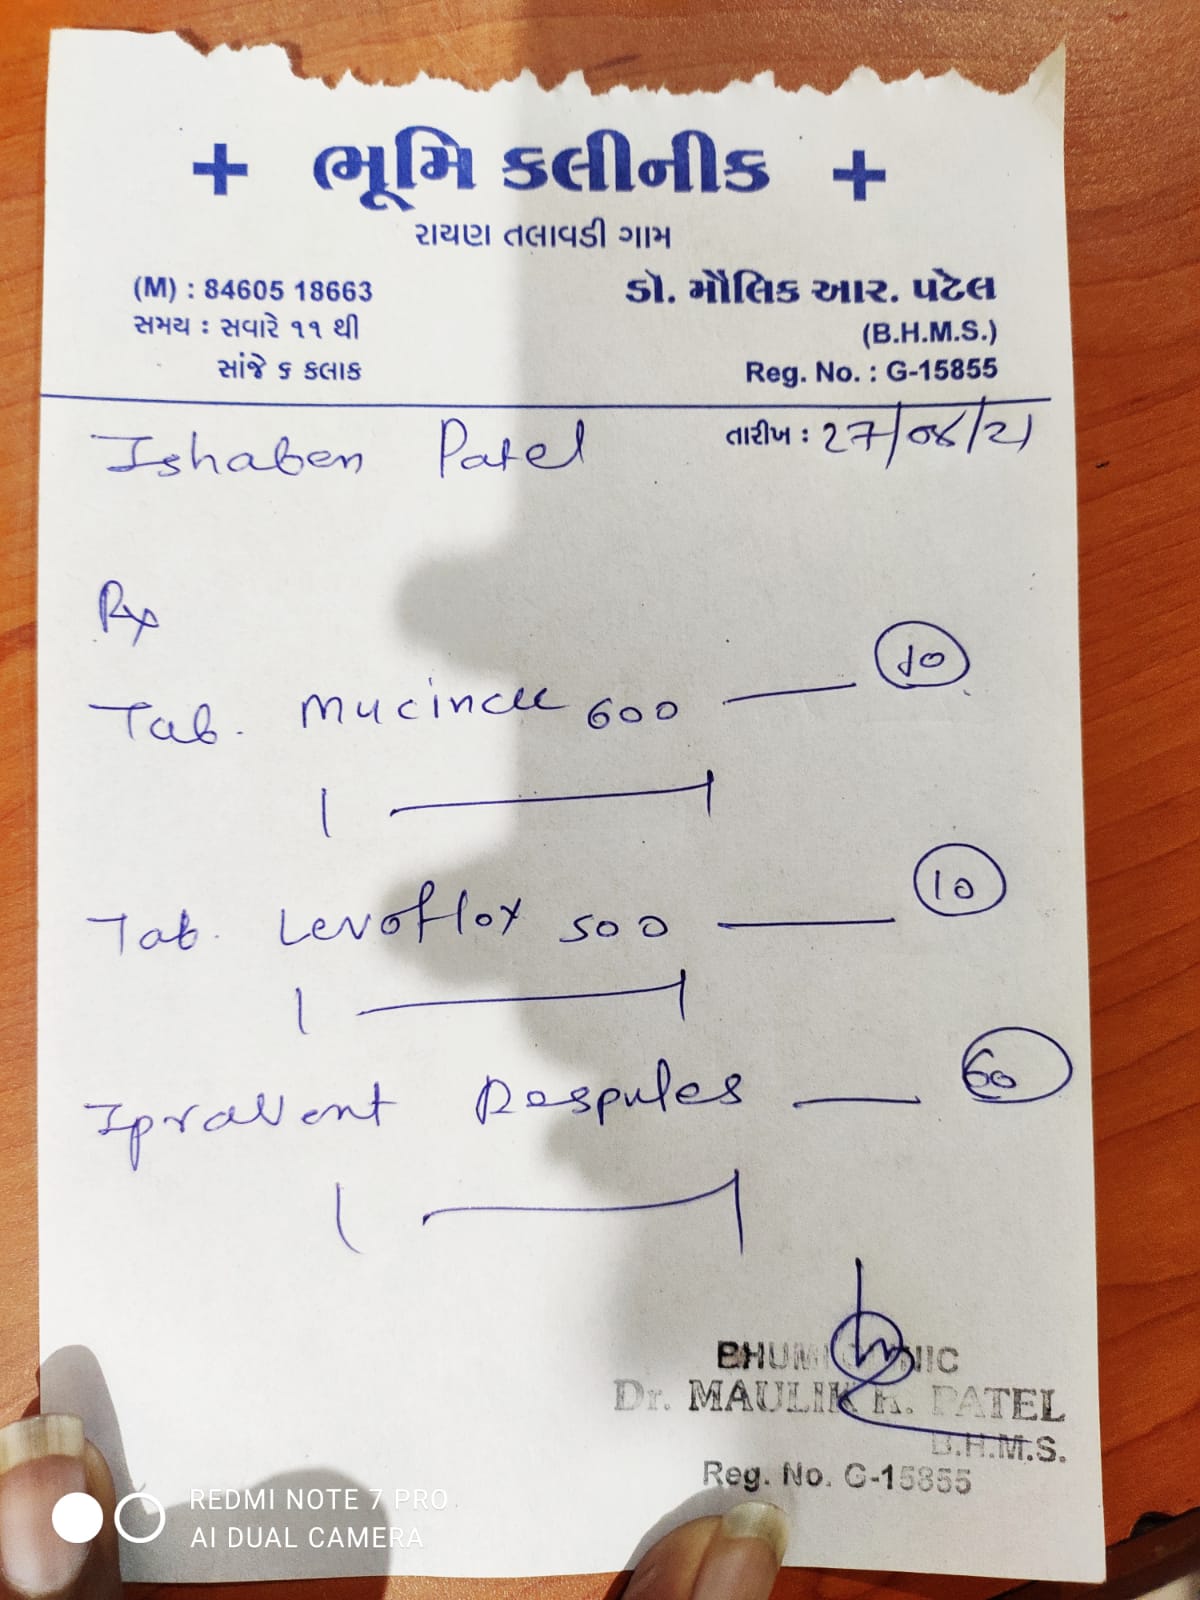 + ભૂમિ ક્લીનીક +
રાયણ તલાવડી ગામ
(M) : 84605 18663
સમય : સવારે ૧૧ થી
સાંજે ૬ કલાક
ડૉ. મૌલિક આર. પટેલ
(B.H.M.S.)
Reg. No. : G-15855
Ishaben Patel
તારીખ : 27/04/21
Rx
Tab. 600 — 10
1 — 1
Tab. Levoflox 500 — 10
1 — 1
Ipravent Respules — 60
1 — 1
BHUMI CLINIC
Dr. MAULIK R. PATEL
B.H.M.S.
Reg. No. G-15855
REDMI NOTE 7 PRO
AI DUAL CAMERA